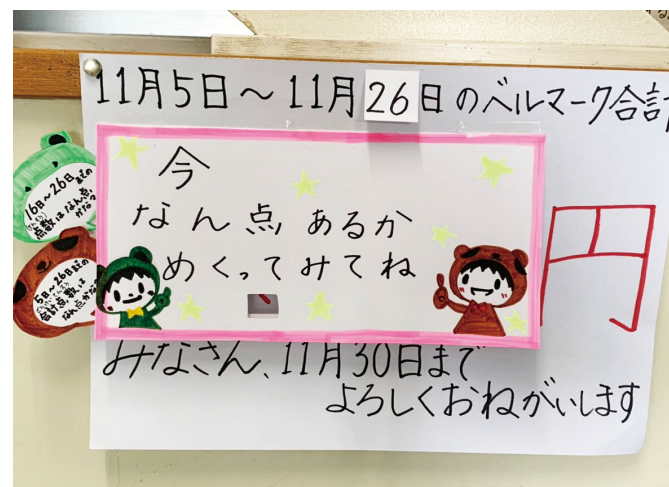 11月5日〜11月26日のベルマーク合計
今
なん点あるか
めくってみてね
円
16日〜26日までの
点数はなん点
かな？
5日〜26日までの
合計点数は
なん点かな
みなさん、11月30日まで
よろしくおねがいします